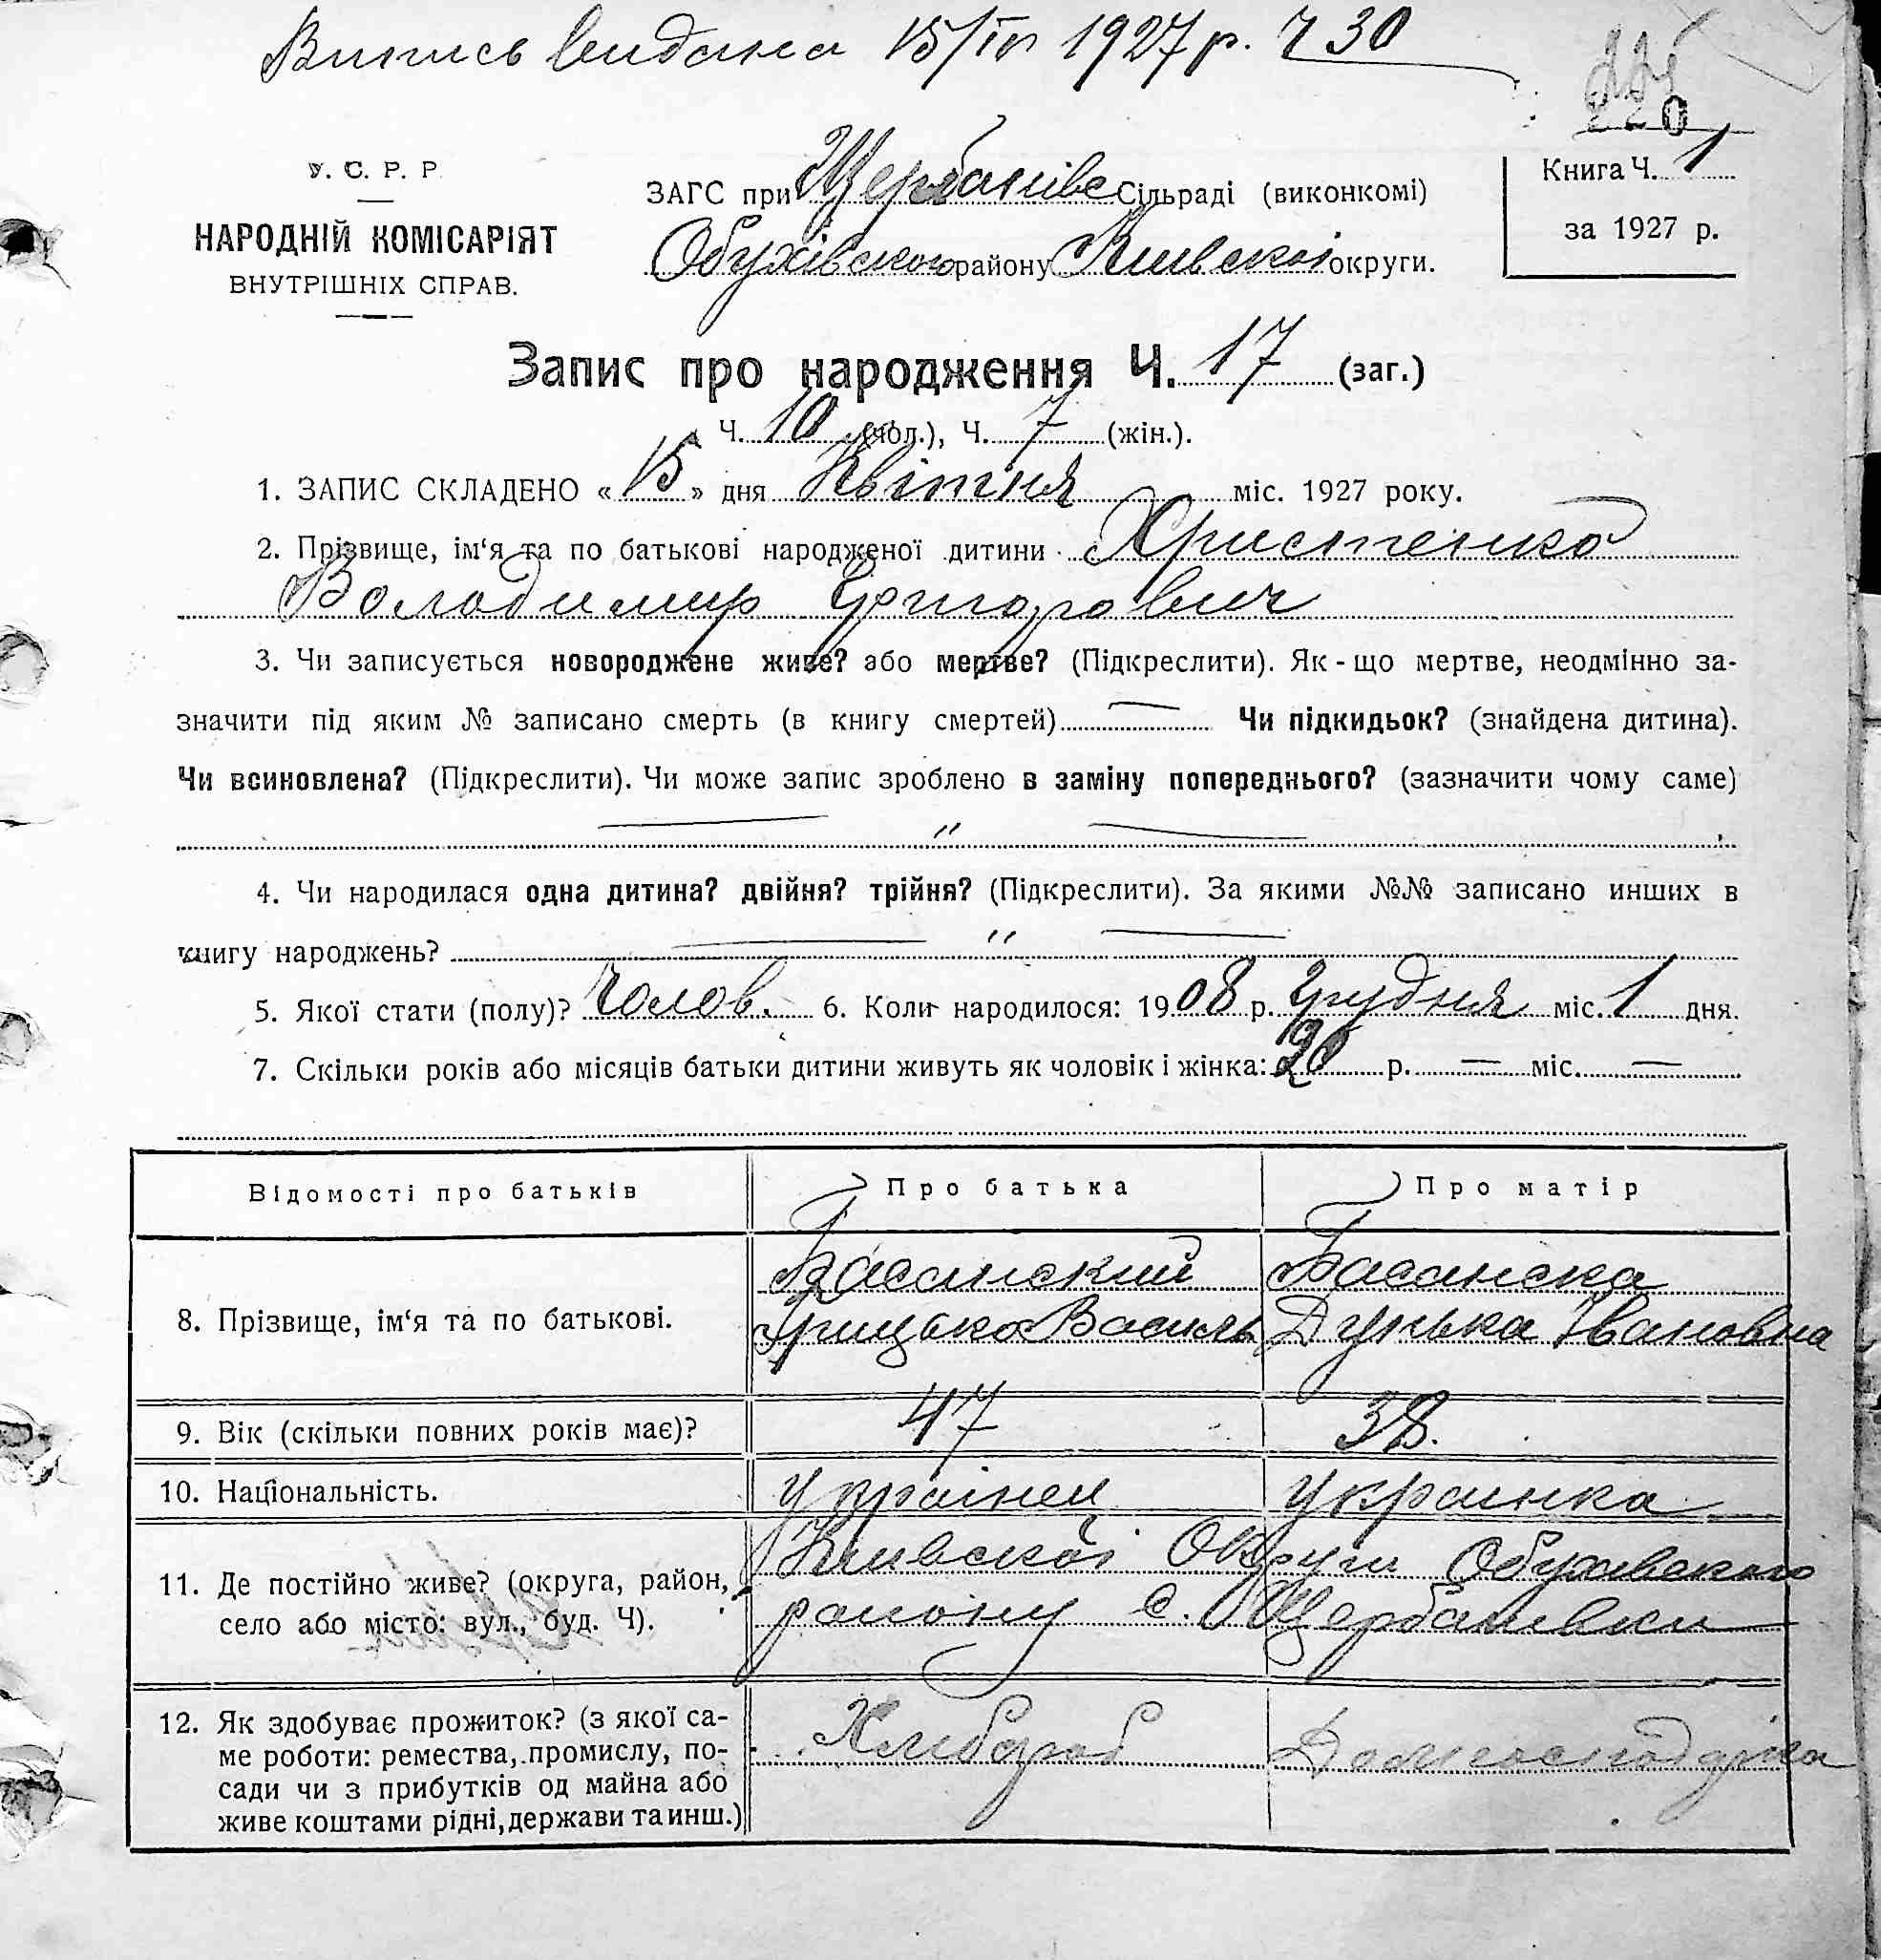 Випись видана 15/IV 1927 р. Ч 30
220
У. С. Р. Р.
НАРОДНІЙ КОМІСАРІЯТ
ВНУТРІШНІХ СПРАВ.
ЗАГС при Щербанівс Сільраді (виконкомі)
Обухівського району Київської округи.
Книга Ч. 1
за 1927 р.
Запис про народження Ч. 17 (заг.)
Ч. 10 (чол.), Ч. 7 (жін.).
1. ЗАПИС СКЛАДЕНО « 15 » дня Квітня міс. 1927 року.
2. Прізвище, ім‘я та по батькові народженої дитини Христенко
Володимир Григорович
3. Чи записується новороджене живе? або мертве? (Підкреслити). Як-що мертве, неодмінно за-
значити під яким № записано смерть (в книгу смертей) — Чи підкидьок? (знайдена дитина).
Чи всиновлена? (Підкреслити). Чи може запис зроблено в заміну попереднього? (зазначити чому саме)
— „ —
4. Чи народилася одна дитина? двійня? трійня? (Підкреслити). За якими №№ записано инших в
книгу народжень? — „ —
5. Якої стати (полу)? Чолов. 6. Коли народилося: 1908 р. Грудня міс. 1 дня.
7. Скільки років або місяців батьки дитини живуть як чоловік і жінка: 20 р. — міс. —
Відомості про батьків Про батька Про матір
8. Прізвище, ім‘я та по батькові.
Басанский Басанска
Грицько Василь Дунька Івановна
9. Вік (скільки повних років має)? 47 38.
10. Національність. українец украинка
11. Де постійно живе? (округа, район,
село або місто: вул., буд. Ч).
Київскої Округи Обухівского
району с. Щербанівки
12. Як здобуває прожиток? (з якої са-
ме роботи: ремества, промислу, по-
сади чи з прибутків од майна або
живе коштами рідні, держави та инш.)
Хлибороб Домогосподарка